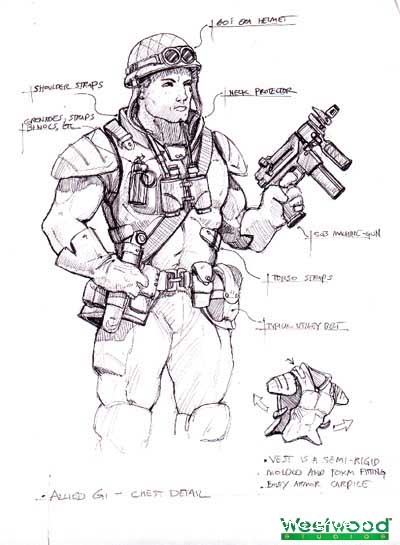 60's ERA HELMET
SHOULDER STRAPS
NECK PROTECTOR
GRENADES, STRAPS
BINOCS, ETC
SUB MACHINE-GUN
TORSO STRAPS
TYPICAL UTILITY BELT
• VEST IS A SEMI-RIGID
• MOLDED AND FORM FITTING
• BODY ARMOR CARPICE
• ALLIED GI - CHEST DETAIL
Westwood
STUDIOS